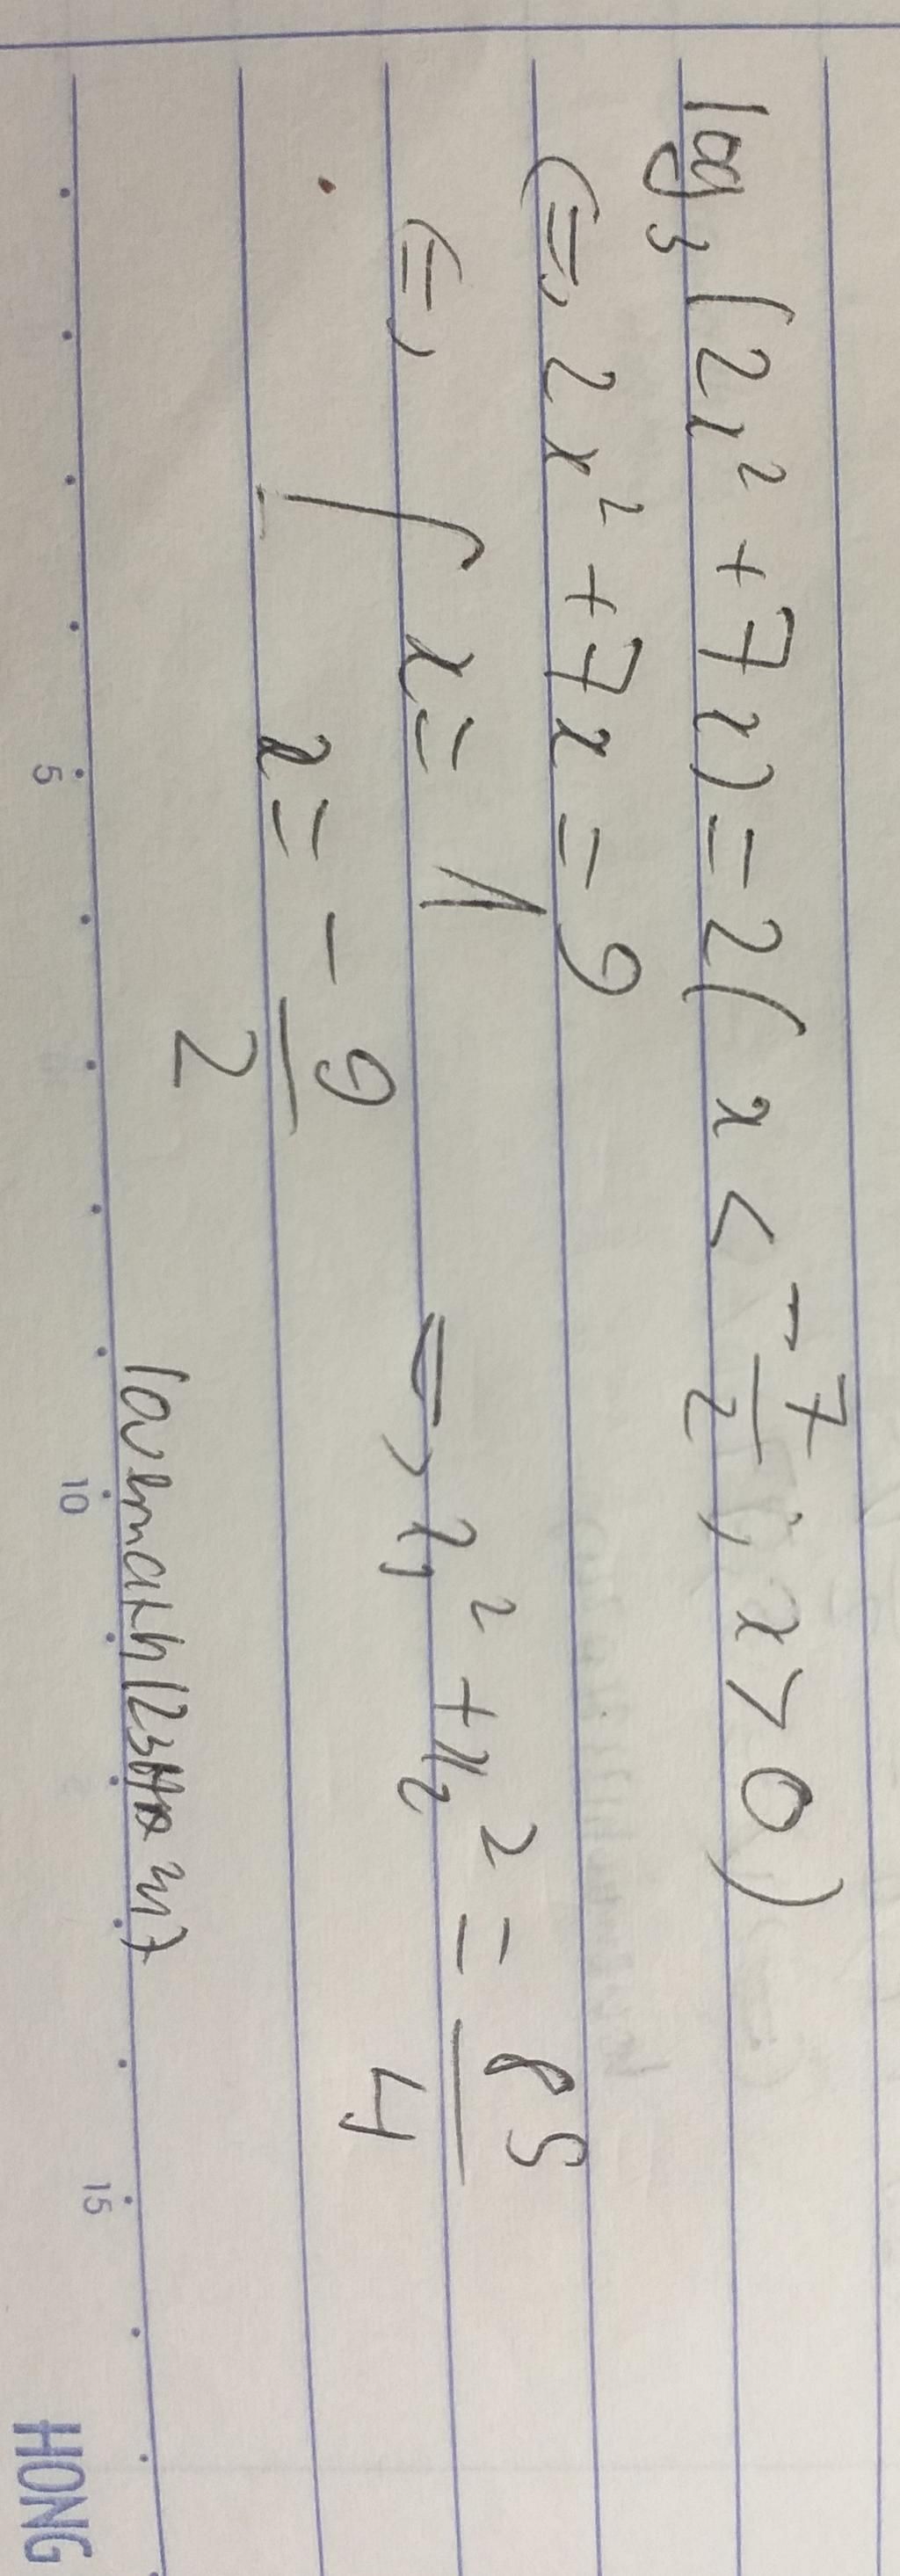 log₃(2x² + 7x) = 2 (x < -7/2; x > 0)
⇔ 2x² + 7x = 9
⇔ [ x = 1
x = -9/2
⇒ x₁² + x₂² = 85/4
5 10 15
HONG